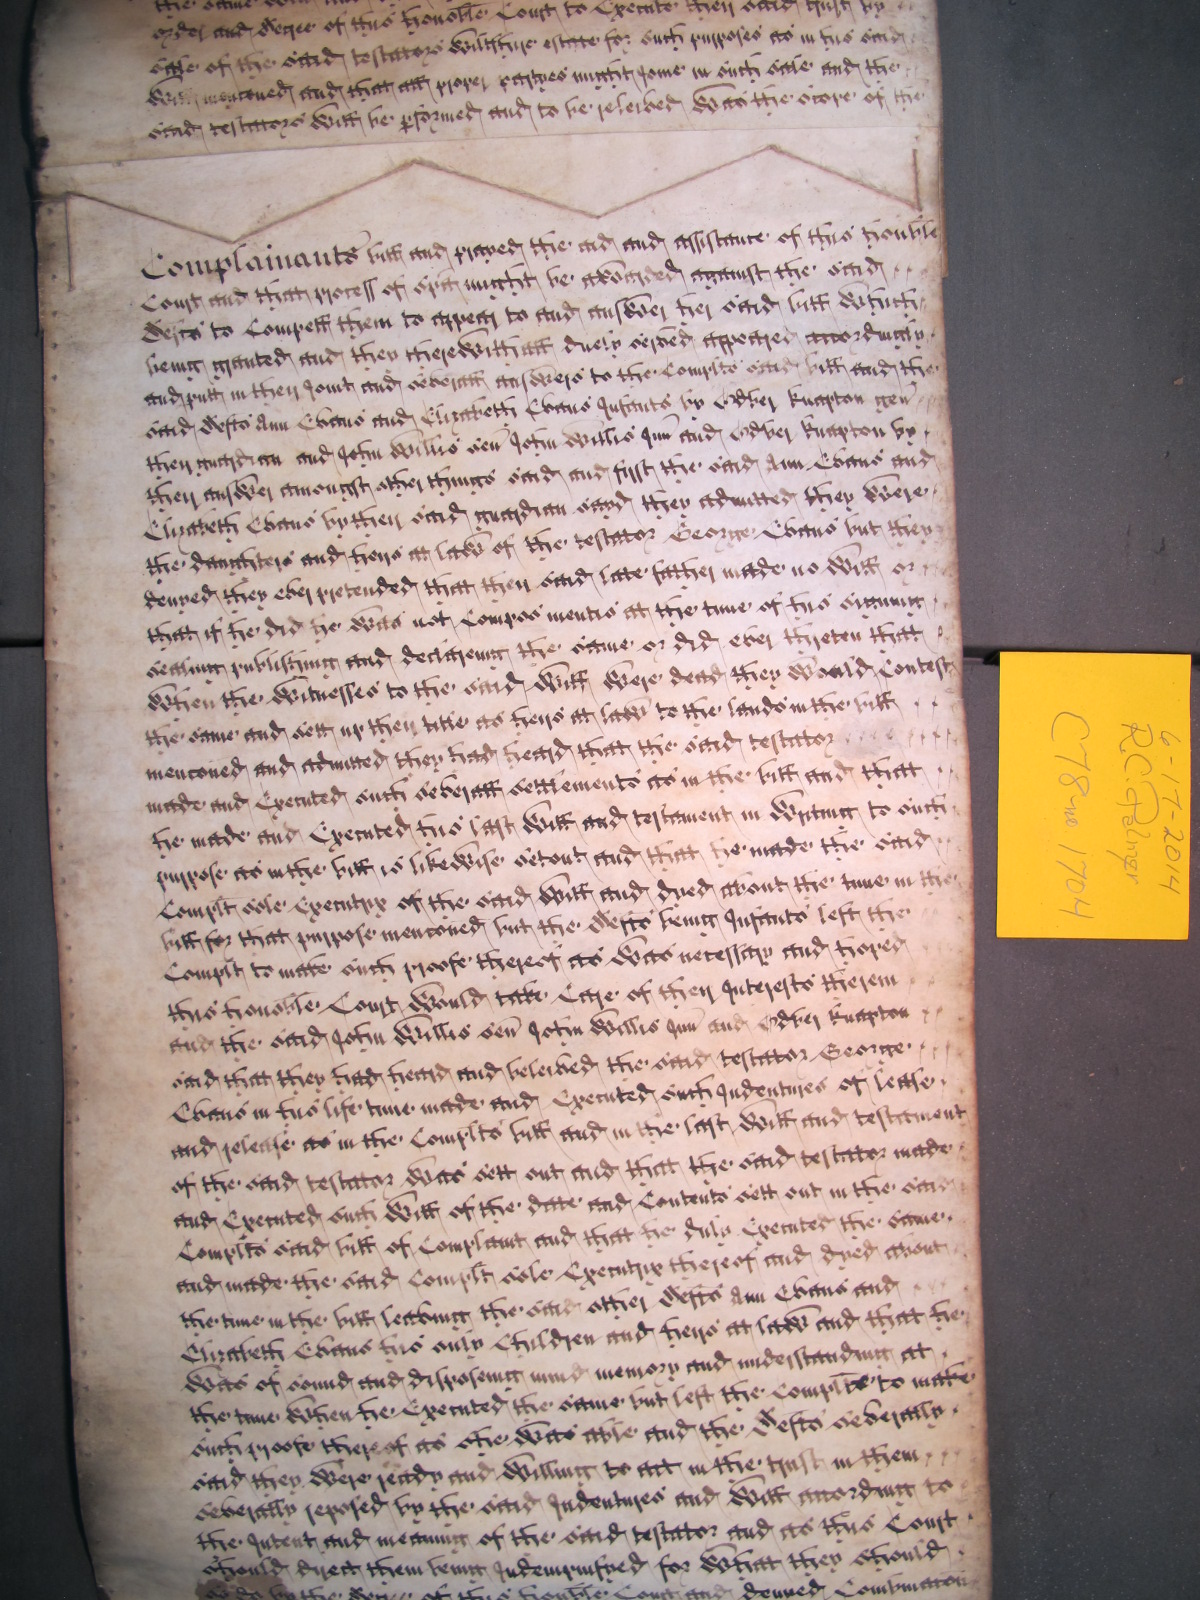 order and decree of this honoble Court to Execute their said trust by
sale of the said testators Wiltshire estate for such purposes as in his said
Will menconed and that all proper partyes might joine in such sale and the
said testators Will be pformed and to be releived Was the scope of the
Complainants bill and prayed the aid and assistance of this honoble
Court and that process of spa might be awarded against the said
Defts to Compell them to appear to and answer her said bill Which
being granted and they therewithall duely served appeared accordingly
and putt in their Joint and severall answers to the Complts said bill and the
said Defts Ann Evans and Elizabeth Evans Infants by Odber Knapton gen
their guardian and John Willis sen John Willis Jun and Odber Knapton by
their answer amongst other things said and first the said Ann Evans and
Elizabeth Evans by their said guardian sayd they admitted they Were
the daughters and heirs at law of the testator George Evans but they
denyed they ever pretended that their said late father made no Will or
that if he did he Was not Compos mentis at the time of his signing
sealing publishing and declareing the same or did ever threten that
When the Witnesses to the said Will Were dead they Would Contest
the same and sett up their title as heirs at law to the lands in the bill
menconed and admitted they had heard that the said testator
made and Executed such severall settlements as in the bill and that
he made and Executed his last Will and testament in Writing to such
purpose as in the bill is likewise setout and that he made the said
Complt sole Executrx of the said Will and dyed about the time in the
bill for that purpose menconed but the Defts being Infants left the
Complt to make such proofe thereof as Was necessary and hoped
this honoble Court Would take Care of their Interests therein
and the said John Willis sen John Willis Jun and Odber Knapton
said that they had heard and beleived the said testator George
Evans in his life time made and Executed such Indentures of lease
and release as in the Complts bill and in the last Will and testament
of the said testator Was sett out and that the said testator made
and Executed such Will of the date and Contents sett out in the said
Complts said bill of Complaint and that he duly Executed the same
and made the said Complt sole Executrx thereof and dyed about
the time in the bill leaving the said other Defts Ann Evans and
Elizabeth Evans his only Children and heirs at law and that he
Was of sound and disposeing mind memory and understanding at
the time When he Executed the same but left the Complte to make
such proofe thereof as she Was able and the Defts severally
said they Were ready and Willing to act in the trust in them
severally reposed by the said Indentures and Will according to
the Intent and meaning of the said testator and as this Court
should direct them being Indempnifyed for What they should
so do by the decree of this honoble Court and denyed Combinacon
6-17-2014
R.C.
C78 no 1704